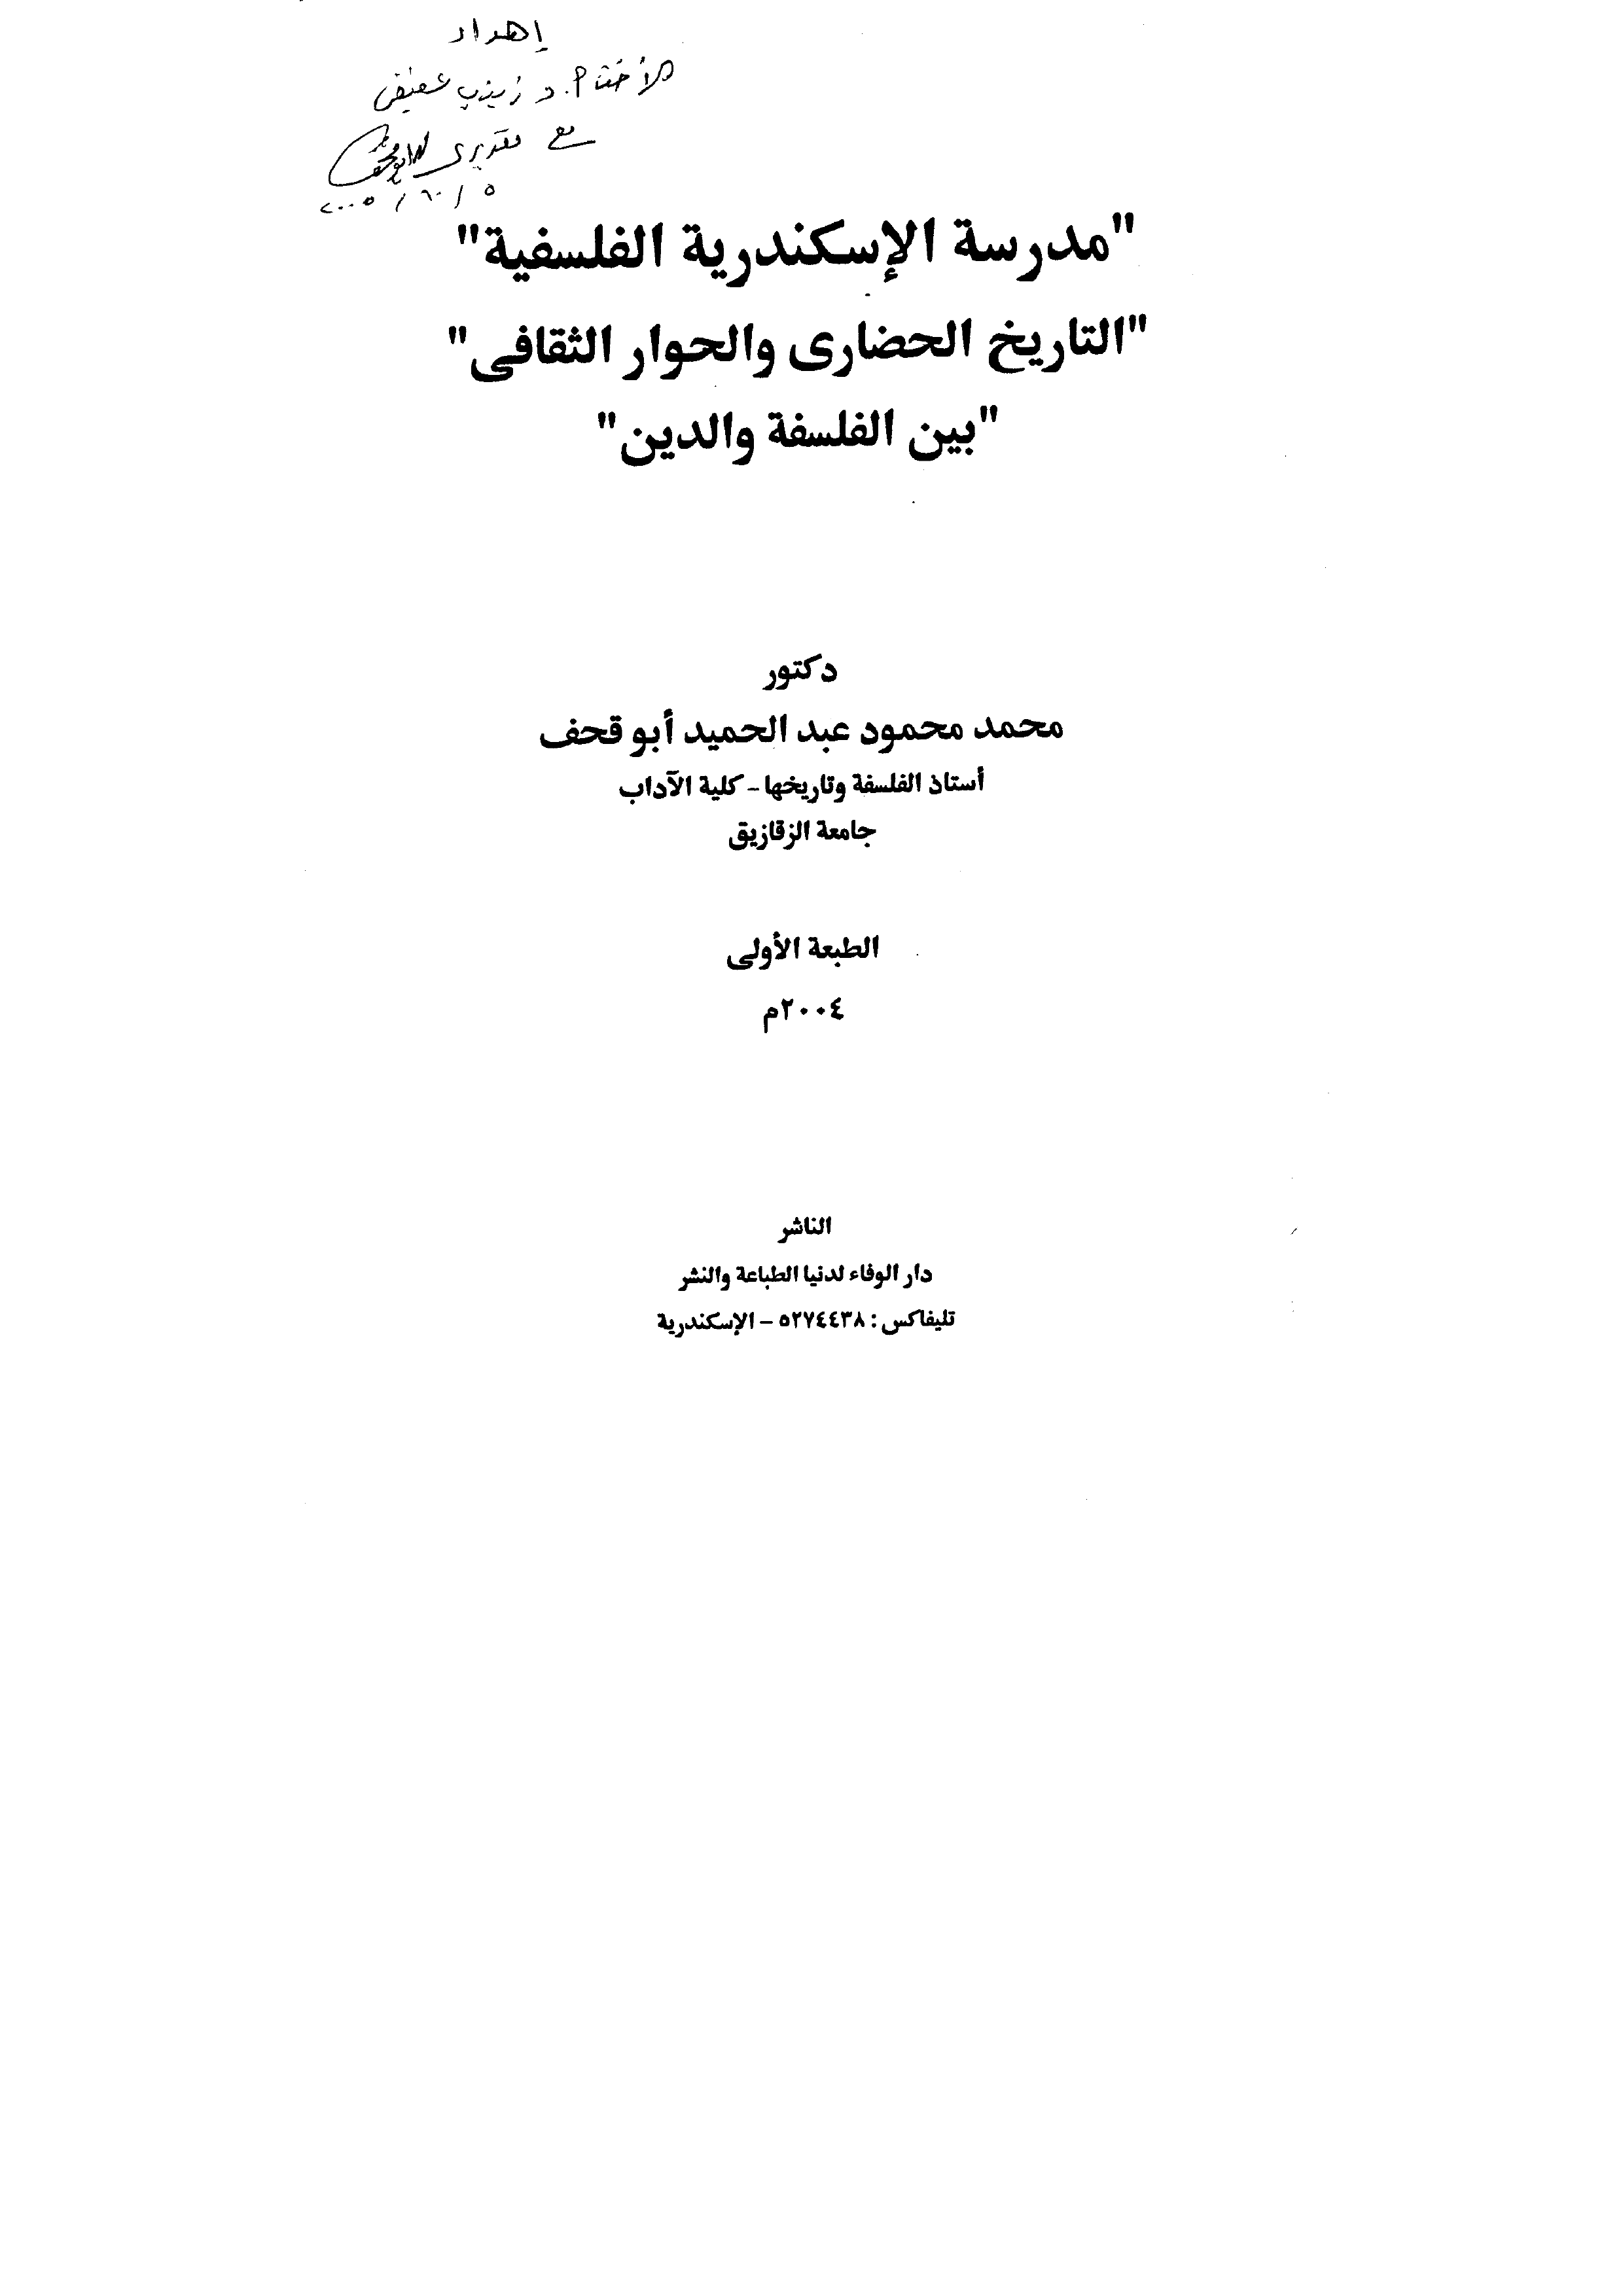 إهداء
للأخت أ.د زينب عفيفى
مع تقديرى
٥ / ١٠ / ٢٠٠٥
"مدرسة الإسكندرية الفلسفية"
"التاريخ الحضارى والحوار الثقافى"
"بين الفلسفة والدين"
دكتور
محمد محمود عبد الحميد أبو قحف
أستاذ الفلسفة وتاريخها - كلية الآداب
جامعة الزقازيق
الطبعة الأولى
٢٠٠٤م
الناشر
دار الوفاء لدنيا الطباعة والنشر
تليفاكس : ٥٢٧٤٤٣٨ - الإسكندرية